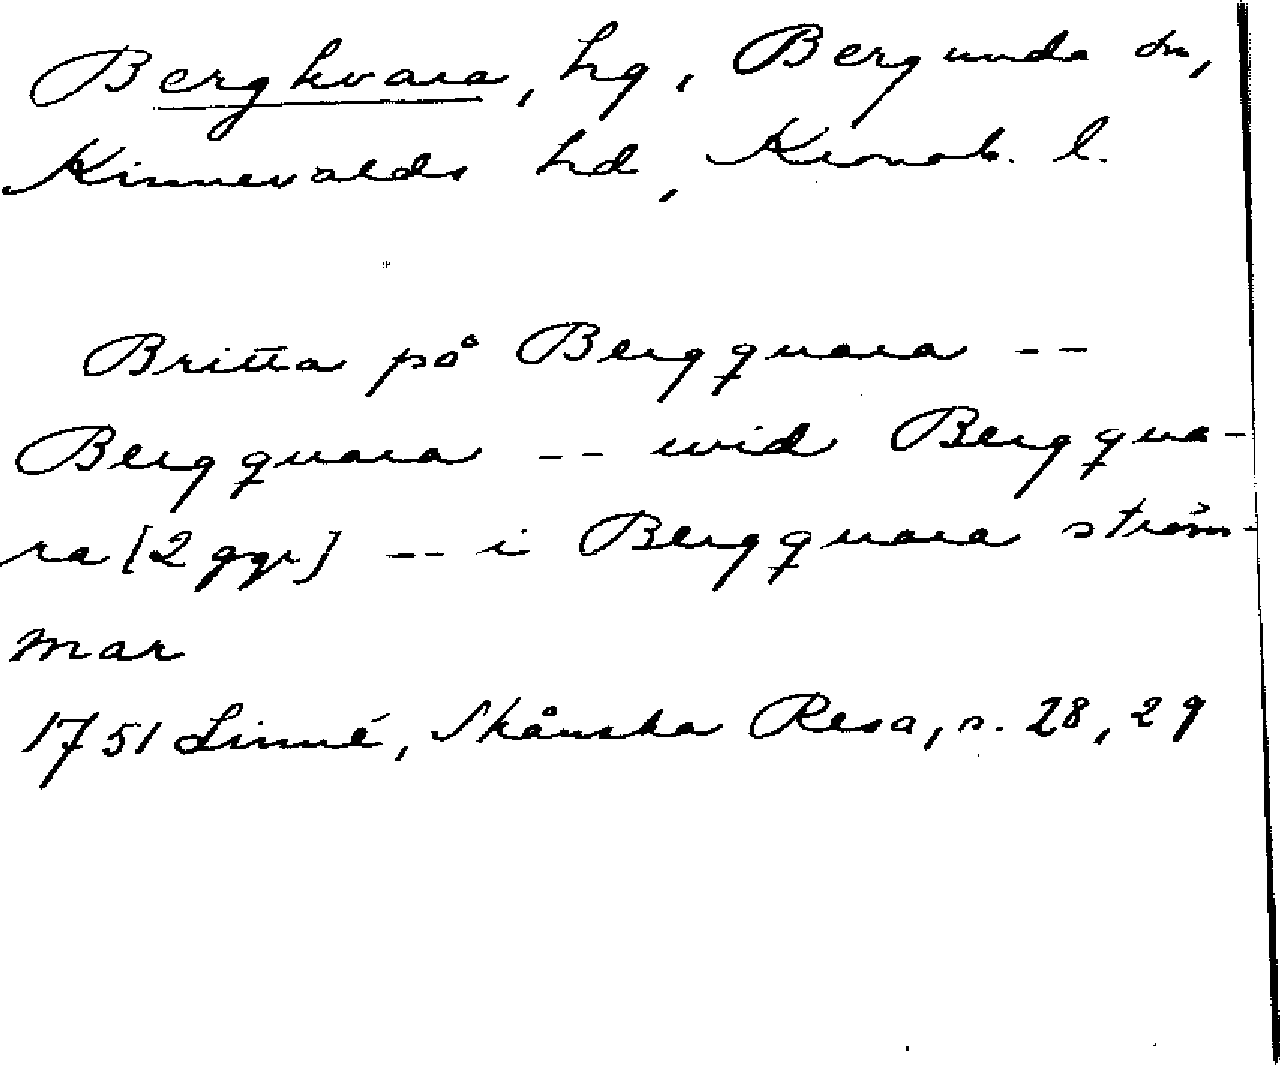 Berghvara, hg, Bergunda sn,
Kinnevalds hd, Kronob. l.
Britta på Bergquara --
Bergquara -- wid Bergqua-
ra [2 ggr] -- i Bergquara ström-
mar
1751 Linné, Skånska Resa, s. 28, 29